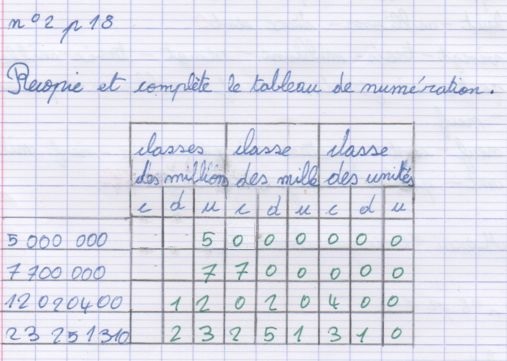 n°2 p 18
Recopie et complète le tableau de numération.
classes classe classe
des million des mille des unités
c d u c d u c d u
5 000 000 5 0 0 0 0 0 0
7 700 000 7 7 0 0 0 0 0
12 020400 1 2 0 2 0 4 0 0
23 251310 2 3 2 5 1 3 1 0